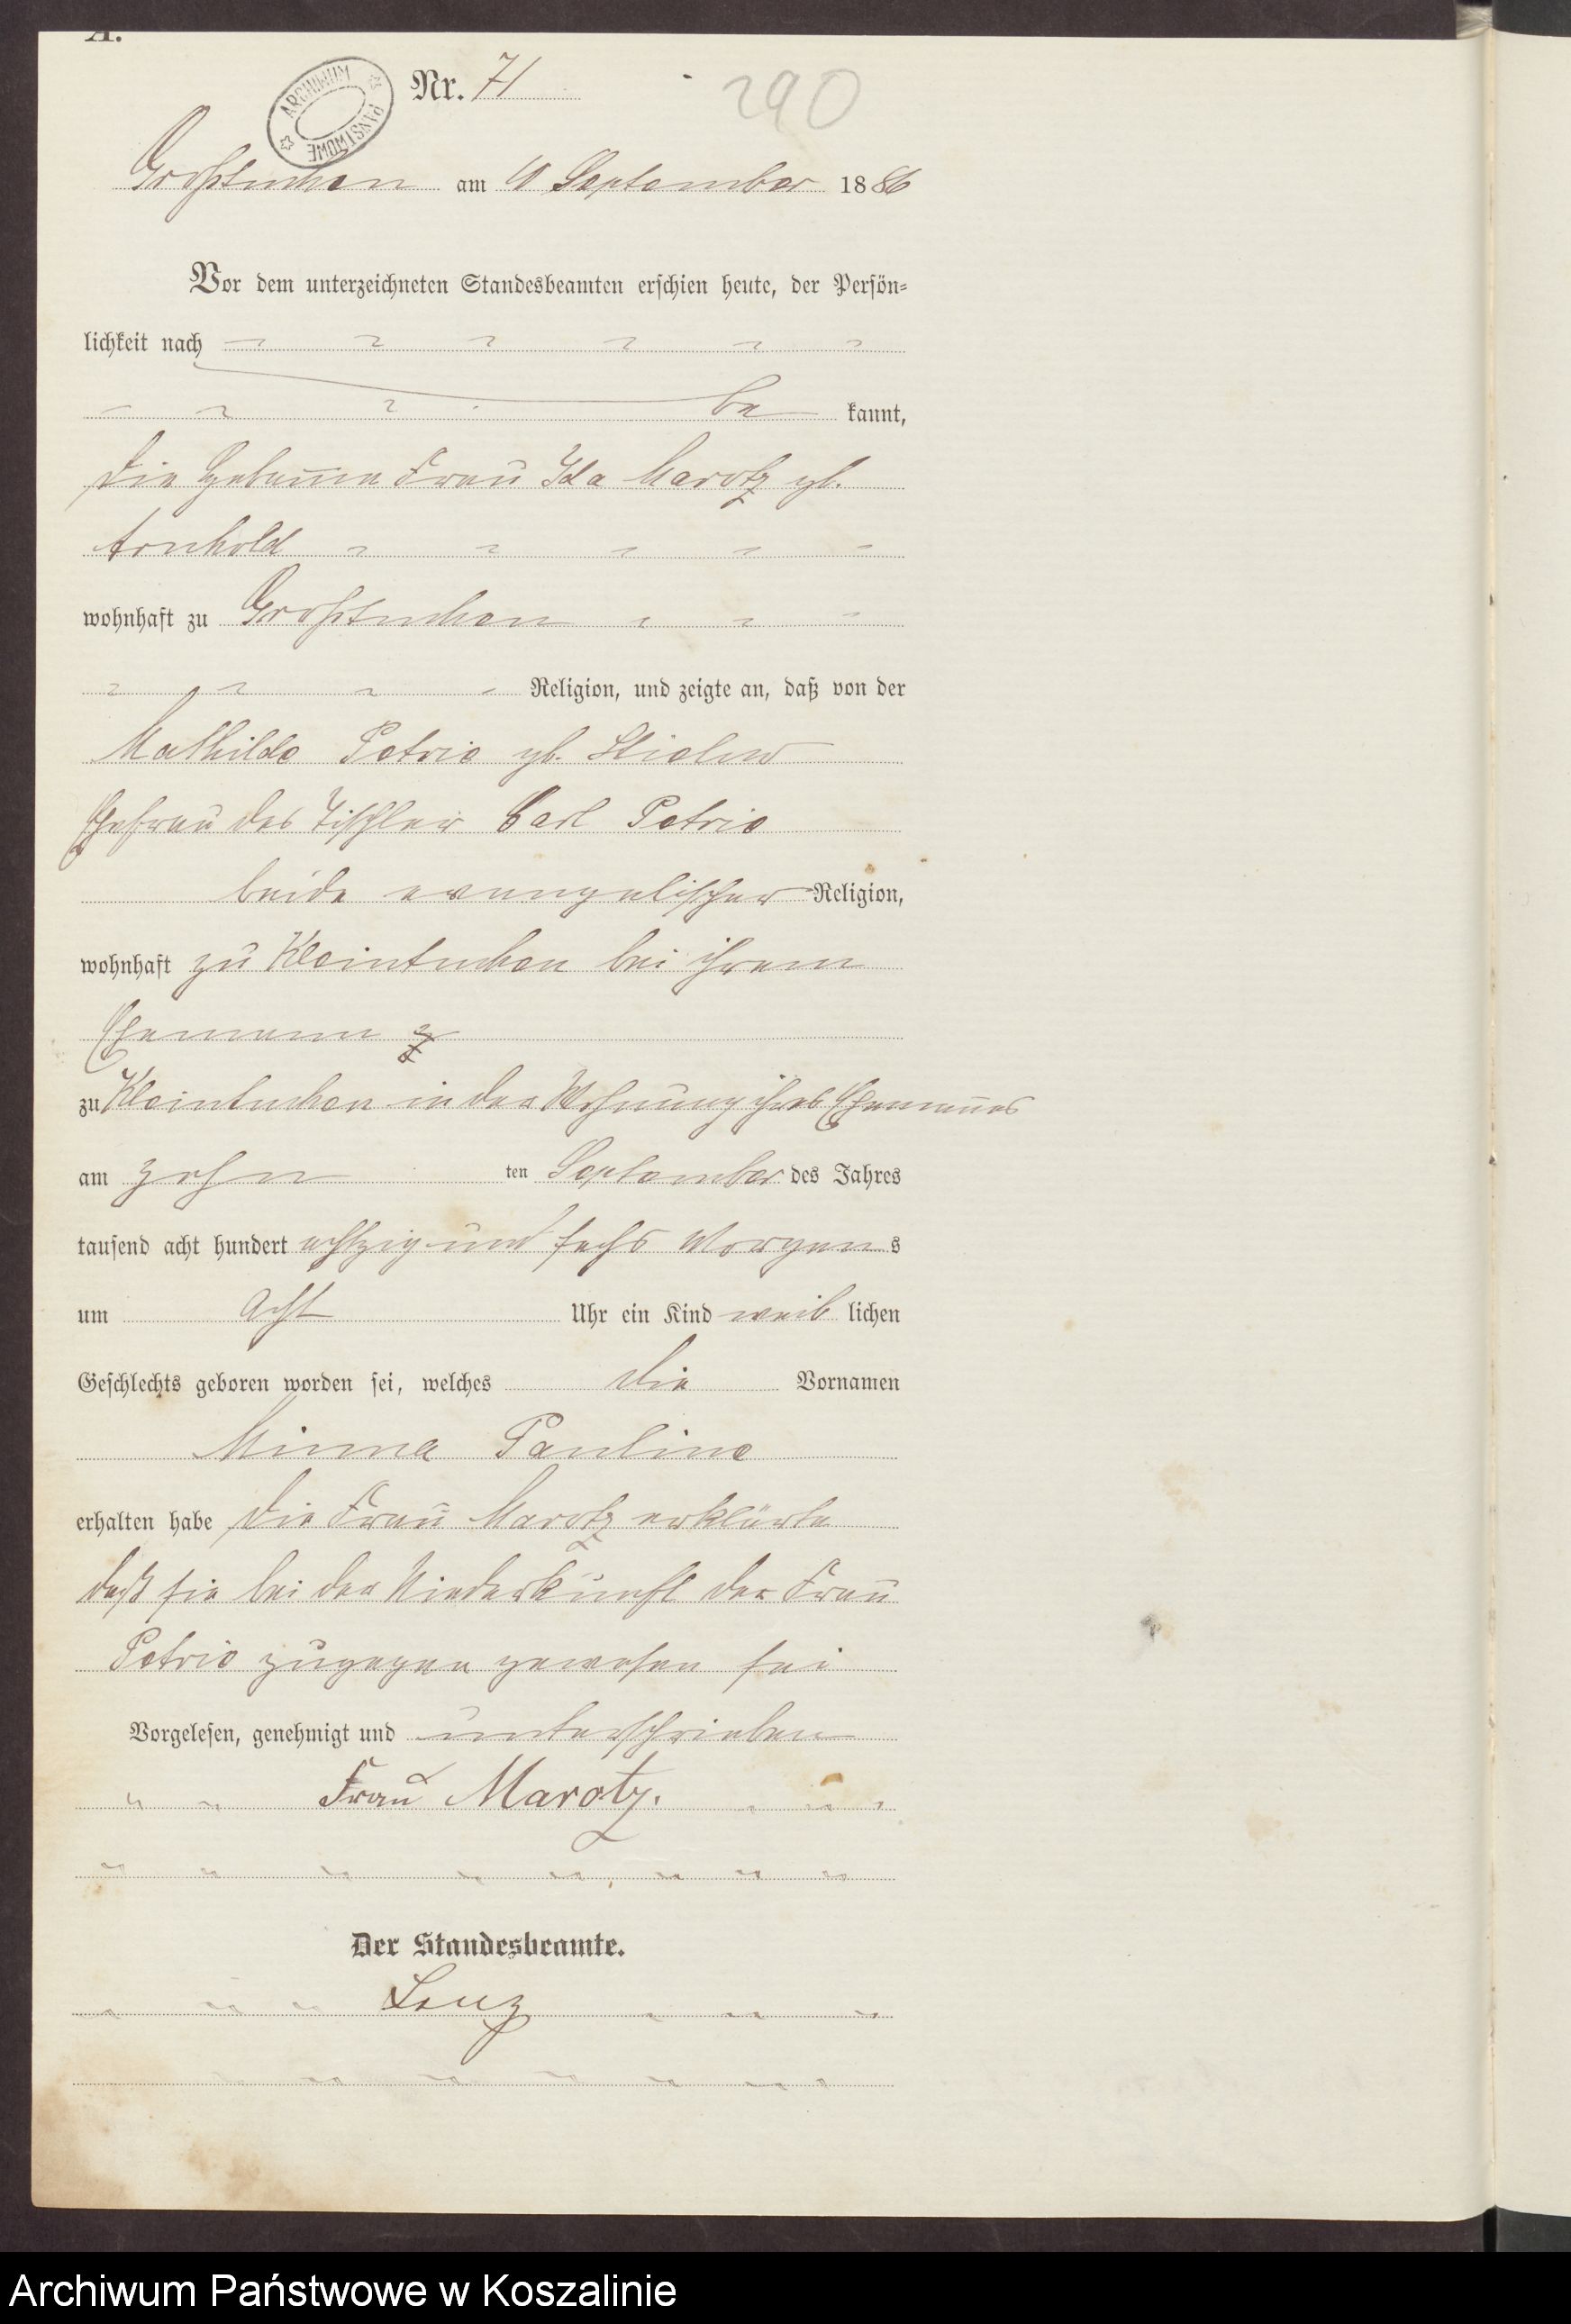 A.
ARCHIWUM PAŃSTWOWE
Nr. 71
290
Großtuchen am 11 September 1886
Vor dem unterzeichneten Standesbeamten erschien heute, der Persön-
lichkeit nach
be kannt,
die Hebam̅e Frau Ida Marotz gb.
Arnhold
wohnhaft zu Großtuchen
Religion, und zeigte an, daß von der
Mathilde Petrie gb.
Ehefrau des Tischler Carl Petrie
beide evangelischer Religion,
wohnhaft zu Kleintuchen bei ihrem
Ehemann
zu Kleintuchen in der Wohnung ihres Eheman̅es
am zehn ten September des Jahres
tausend acht hundert achtzig und sechs Morgens
um Acht Uhr ein Kind weib lichen
Geschlechts geboren worden sei, welches die Vornamen
Minna Pauline
erhalten habe die Frau Marotz erklärte
daß sie bei der Niederkunft der Frau
Petrie zugegen gewesen sei
Vorgelesen, genehmigt und unterschrieben
Frau Marotz.
Der Standesbeamte.
Lenz
Archiwum Państwowe w Koszalinie